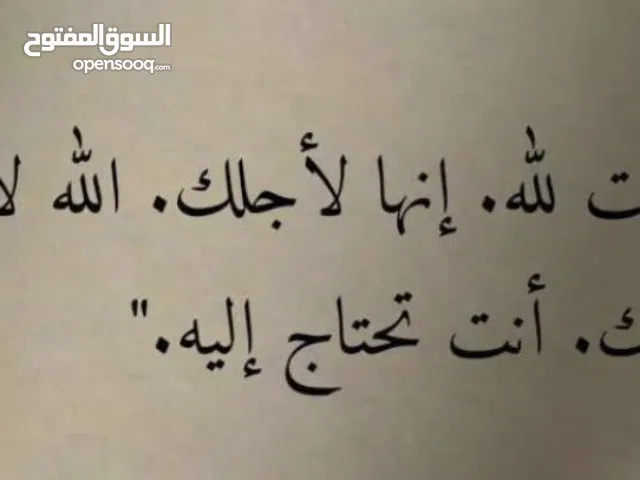 السوق المفتوح
opensooq.com
لله. إنها لأجلك. الله لا
أنت تحتاج إليه."